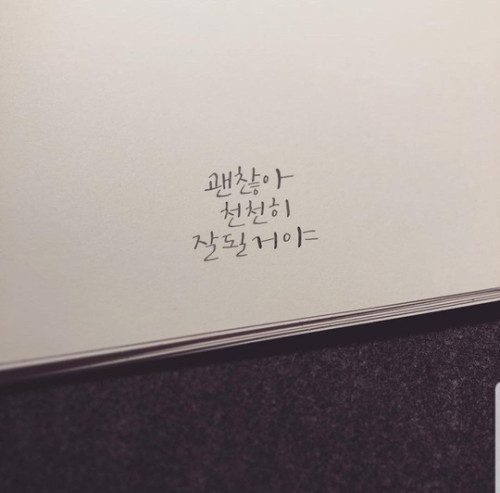 괜찮아
천천히
잘될거야